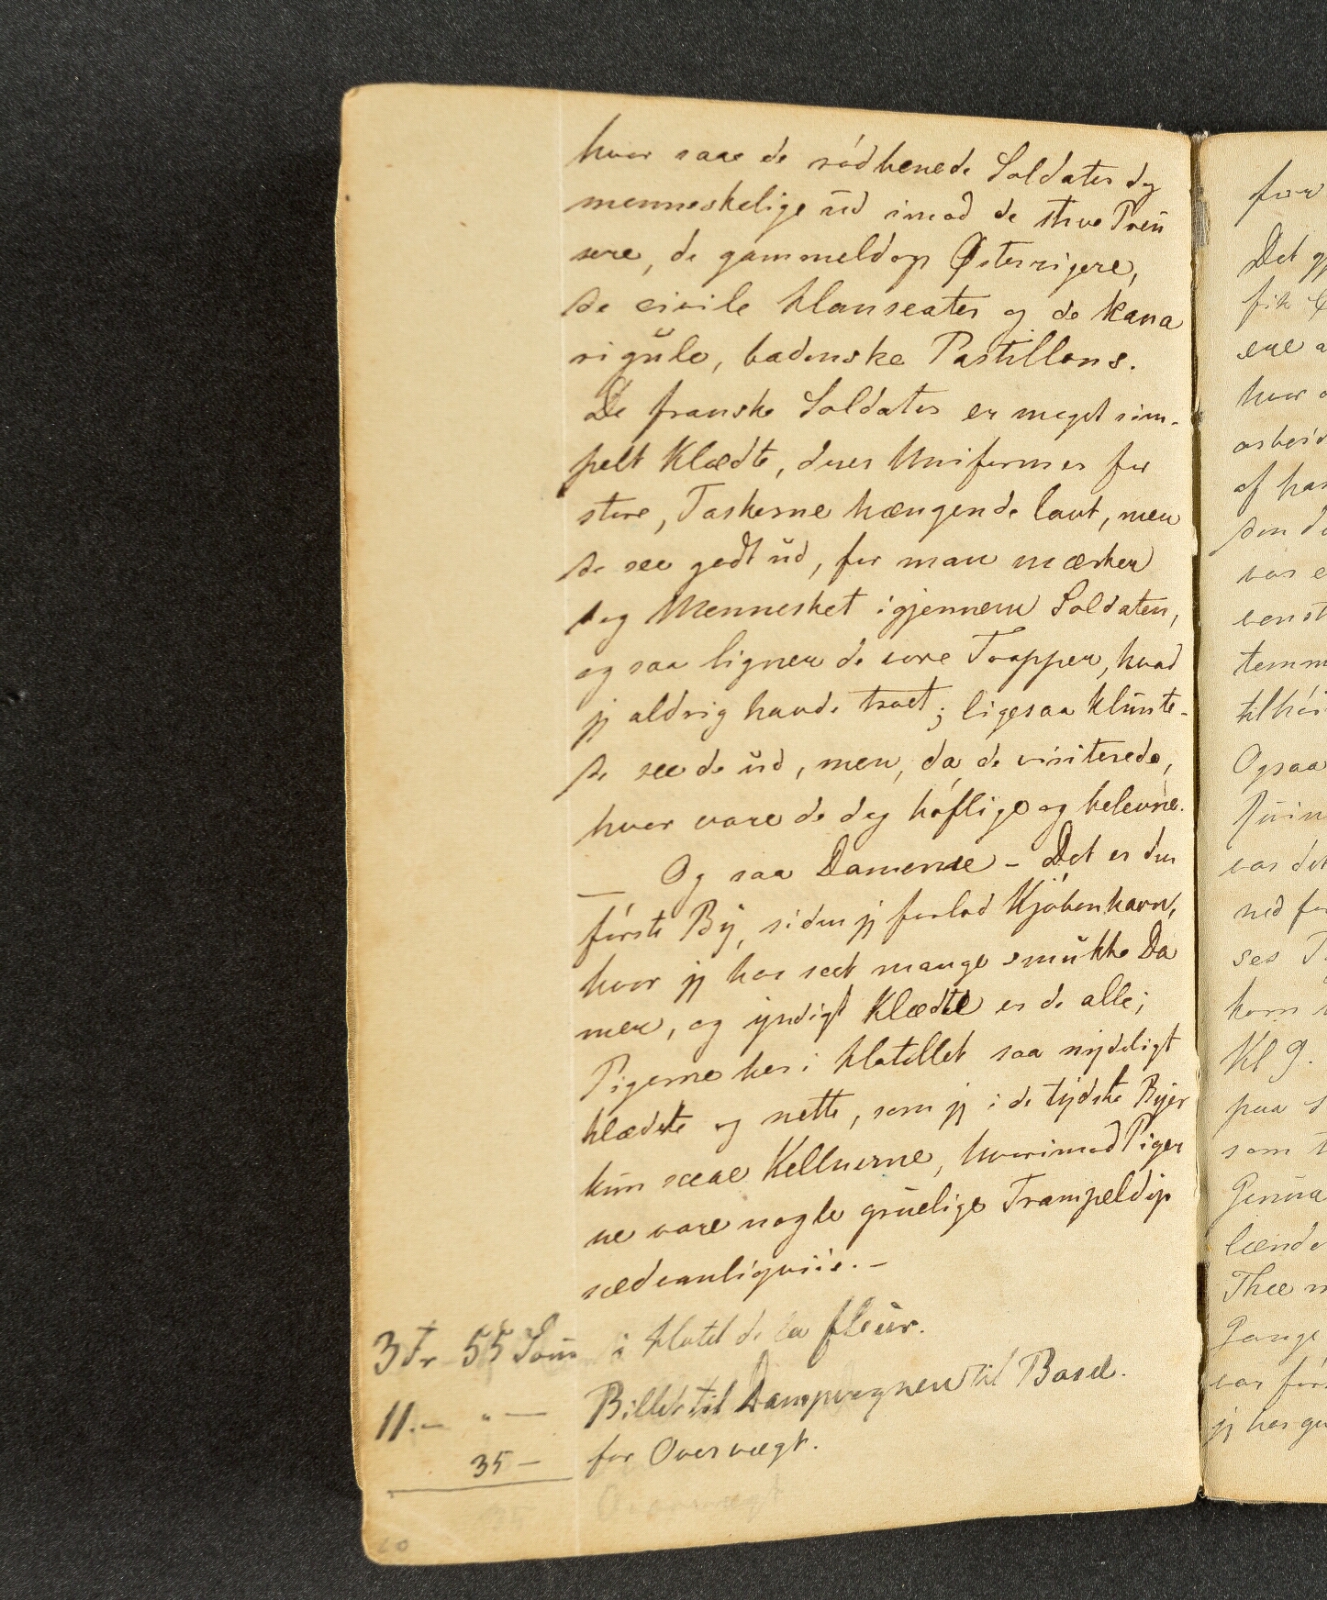 hvor saae de rødbenede Soldater dog
menneskelige ud imod de stive Preu
sere, de gammeldags Østerrigere,
de civile Hanseater og de kana
rigule, badenske Postillons.
De franske Soldater er meget sim-
pelt klædte, deres Uniformer for
store, Taskerne hængende lavt, men
de see godt ud, for man mærker
dog Mennesket igjennem Soldaten,
og saa ligner de vore Tropper, hvad
jeg aldrig havde troet; ligesaa klunte-
de see de ud, men, da de visiterede,
hvor vare de dog høflige og belevne.
— Og saa Damerne – Det er den
første By, siden jeg forlod Kjøbenhavn,
hvor jeg har seet mange smukke Da
mer, og yndigt klædte er de alle;
Pigerne her i Hotellet saa nydeligt
klædte og nette, som jeg i de tydske Byer
kun saae Kellnerne, hvorimod Piger
ne vare nogle gruelige Trampeldyr
sædvanligviis. –
3 Fr 55 Sous i Hotel de la fleur.
11.– " — Billet til Dampvognen til Basel.
35 – for Overvægt.
for
Det
fik
ere
hvor
arbeid
af
den
var
temm
Ogsaa
var det
ned for
ses
kom
Kl 9.
paa
som
lænde
Thee
Gange
var
jeg har